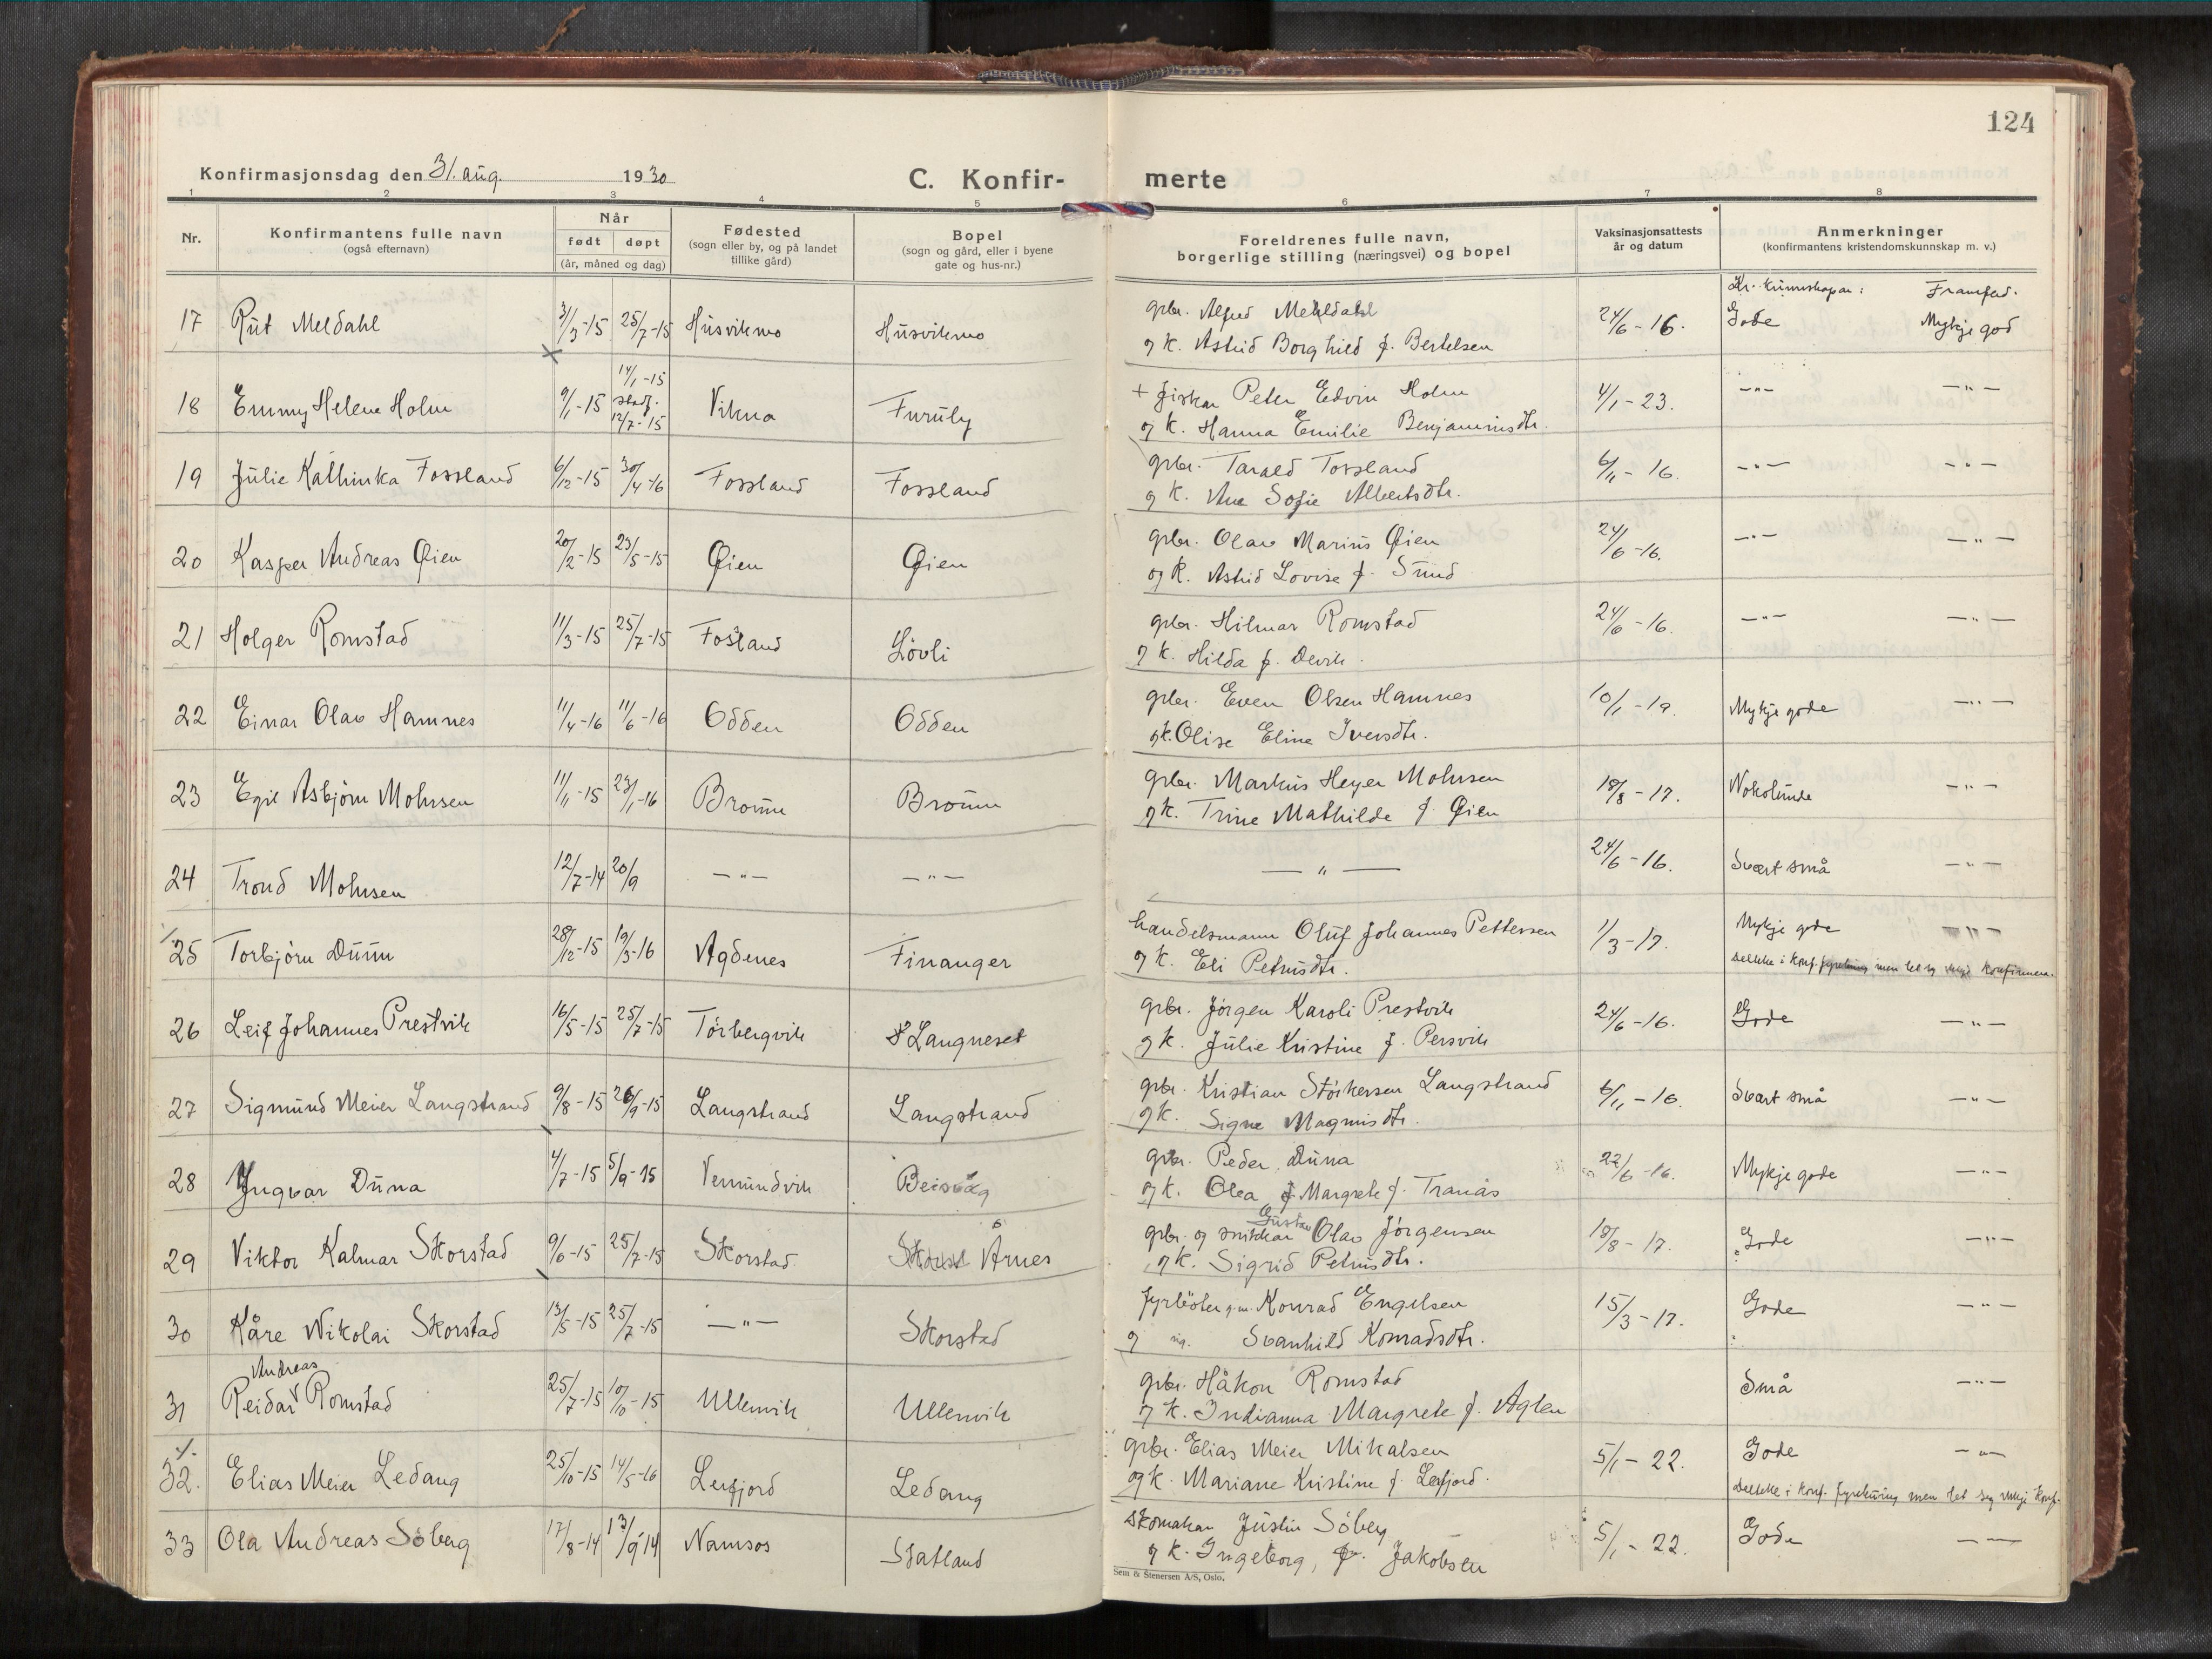 124
Konfirmasjonsdag den 31. aug. 1930 C. Konfir- merte
1 2 3 4 5 6 7 8
Nr. Konfirmantens fulle navn (også efternavn) Når født døpt (år, måned og dag) Fødested (sogn eller by, og på landet tillike gård) Bopel (sogn og gård, eller i byene gate og hus-nr.) Foreldrenes fulle navn, borgerlige stilling (næringsvei) og bopel Vaksinasjonsattests år og datum Anmerkninger (konfirmantens kristendomskunnskap m. v.)
Kr. kunnskapar: Framferd.
17 Rut Meldahl 3/3-15 25/7-15 Husvikmo Husvikmo gbr. Alfred Meldahl 24/6-16. Gode Mykje god
og k. Astrid Borghild f. Bertelsen
14/1-15
18 Emmy Helene Holm 9/1-15 stadf. Vikna Furuly + fiskar Peter Edvin Holm 4/1-23. -"- -"-
12/7-15 og k. Hanna Emilie Benjaminsdtr.
19 Julie Kathinka Fossland 6/12-15 30/4-16 Fossland Fossland gbr. Tarald Fossland 6/11-16. -"- -"-
og k. Ane Sofie Albertsdtr.
20 Kasper Andreas Øien 20/2-15 23/5-15 Øien Øien gbr. Olav Marius Øien 24/6-16. -"- -"-
og k. Astrid Lovise f. Sund
21 Holger Romstad 11/3-15 25/7-15 Fosland Lövli gbr. Hilmar Romstad 24/6-16. -"- -"-
og k. Hilda f. Devik.
22 Einar Olav Hamnes 11/4-16 11/6-16 Odden Odden gbr. Even Olsen Hamnes 10/1-19. Mykje gode -"-
og k. Olise Eline Iversdtr.
23 Egil Asbjørn Mohrsen 11/11-15 23/1-16 Broum Broum gbr. Markus Heyer Mohrsen 18/8-17. Nokolunde -"-
og k. Trine Mathilde f. Øien
24 Trond Mohrsen 12/7-14 20/9 -"- -"- -"- 24/6-16. Svært små -"-
25 Torbjörn Duun 28/12-15 19/3-16 Agdenes Finanger handelsmann Oluf Johannes Pettersen 1/3-17. Mykje gode -"-
og k. Eli Petrusdtr. Deltke i konf. fyrebuing men let seg ikkje konfirmera.
26 Leif Johannes Prestvik 16/5-15 25/7-15 Törbergvik Langneset gbr. Jörgen Karoli Prestvik 24/6-16. Gode -"-
og k. Julie Kristine f. Persvik
27 Sigmund Meier Langstrand 9/8-15 26/9-15 Langstrand Langstrand gbr. Kristian Störkersen Langstrand 6/11-16. Svært små -"-
og k. Signe Magnusdtr.
28 Yngvar Duna 4/7-15 5/9-15 Vemundvik gbr. Peder Duna 22/6-16. Mykje gode -"-
og k. Olea Margrete f. Tranås
29 Viktor Kalmar Skorstad 9/6-15 25/7-15 Skorstad Årnes gbr. og snikkar Gustav Olav Jörgensen 18/8-17. Gode -"-
og k. Sigrid Petrusdtr.
30 Kåre Nikolai Skorstad 13/5-15 25/7-15 -"- Skorstad fyrböter g.m. Konrad Engelsen 15/3-17. Gode -"-
og Svanhild Konradsdtr.
Andreas
31 Reidar Romstad 25/7-15 10/10-15 Ullervik Ullervik gbr. Håkon Romstad Små -"-
og k. Indianna Margrete f. Aglen
32. Elias Meier Ledang 25/10-15 14/5-16 Lerfjord Ledang gbr. Elias Meier Mikalsen 5/1-22. Gode -"-
og k. Mariane Kristine f. Lerfjord. Deltke i konf. fyrebuing men let seg ikkje konf.
33 Ola Andreas Söberg 17/8-14 13/9 14 Namsos Statland Skomakar Justin Söberg 5/1-22. Gode -"-
og k. Ingeborg, f. Jakobsen
Sem & Stenersen A/S, Oslo.